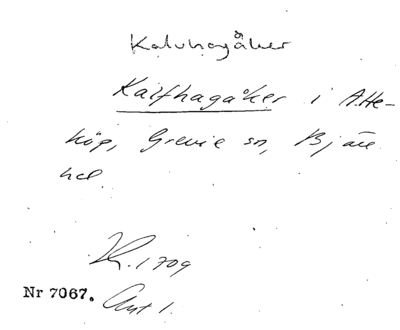 Kalvhagåker
Kalfhagåker i A.He-
köp, Grevie sn, Bjäre
hd.
Kr. 1709
Nr 7067. Ant 1.